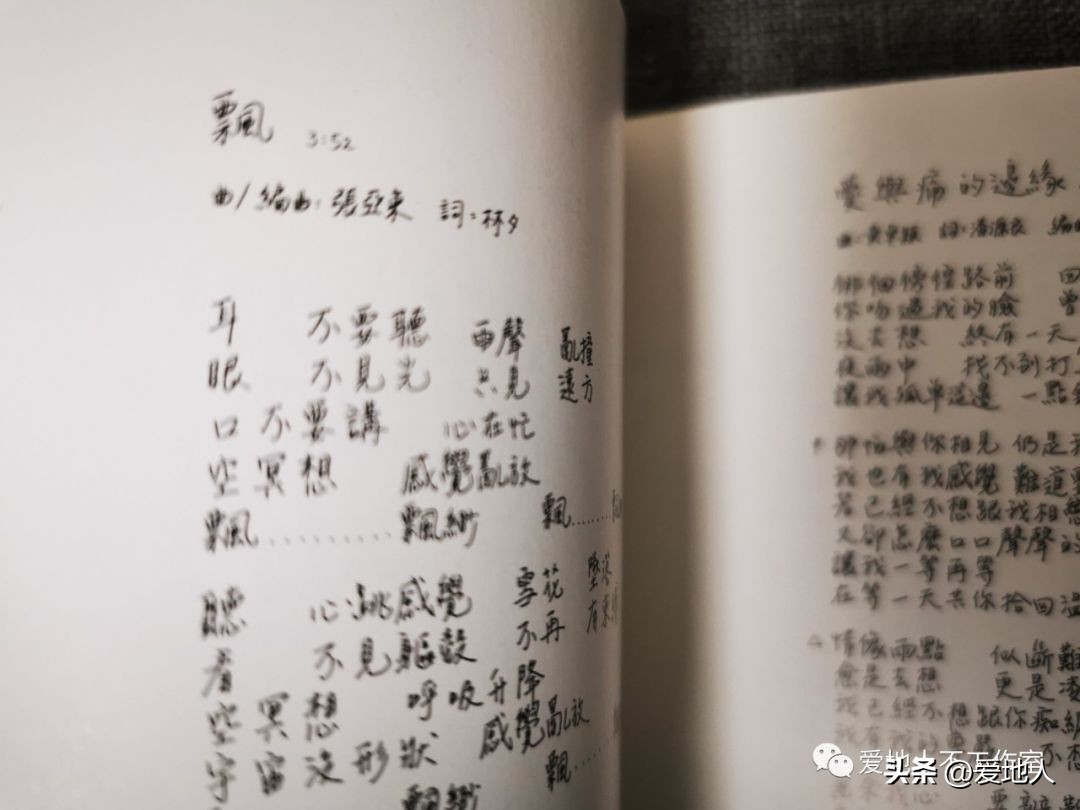 飄 3:52
曲/編曲:張亞東 詞:林夕
耳 不要聽 雨聲 亂撞
眼 不見光 只見 遠方
口不要講 心在忙
空冥想 感覺亂放
飄.......... 飄紗 飄........
聽 心跳感覺 雪花 墜落
看 不見軀殼 不再 有束
空冥想 呼吸升降
宇宙沒形狀 感覺亂放
飄.....
愛與痛的邊緣
曲: 詞:潘源良 編曲
徘徊傍徨路前 回
你吻過我的臉 曾
沒去想 終有一天
夜雨中 找不到打
讓我孤單這邊 一點
卻怕與你相見 仍是
我也有我感覺 難道要
若已經不想跟我相戀
又卻怎麼口口聲聲的
讓我一等再等
在等一天共你拾回溫
情像雨點 似斷難
愈是去想 更是凌
我已經不想跟你癡纏
我有我的
爱地人不工作室
头条 @爱地人